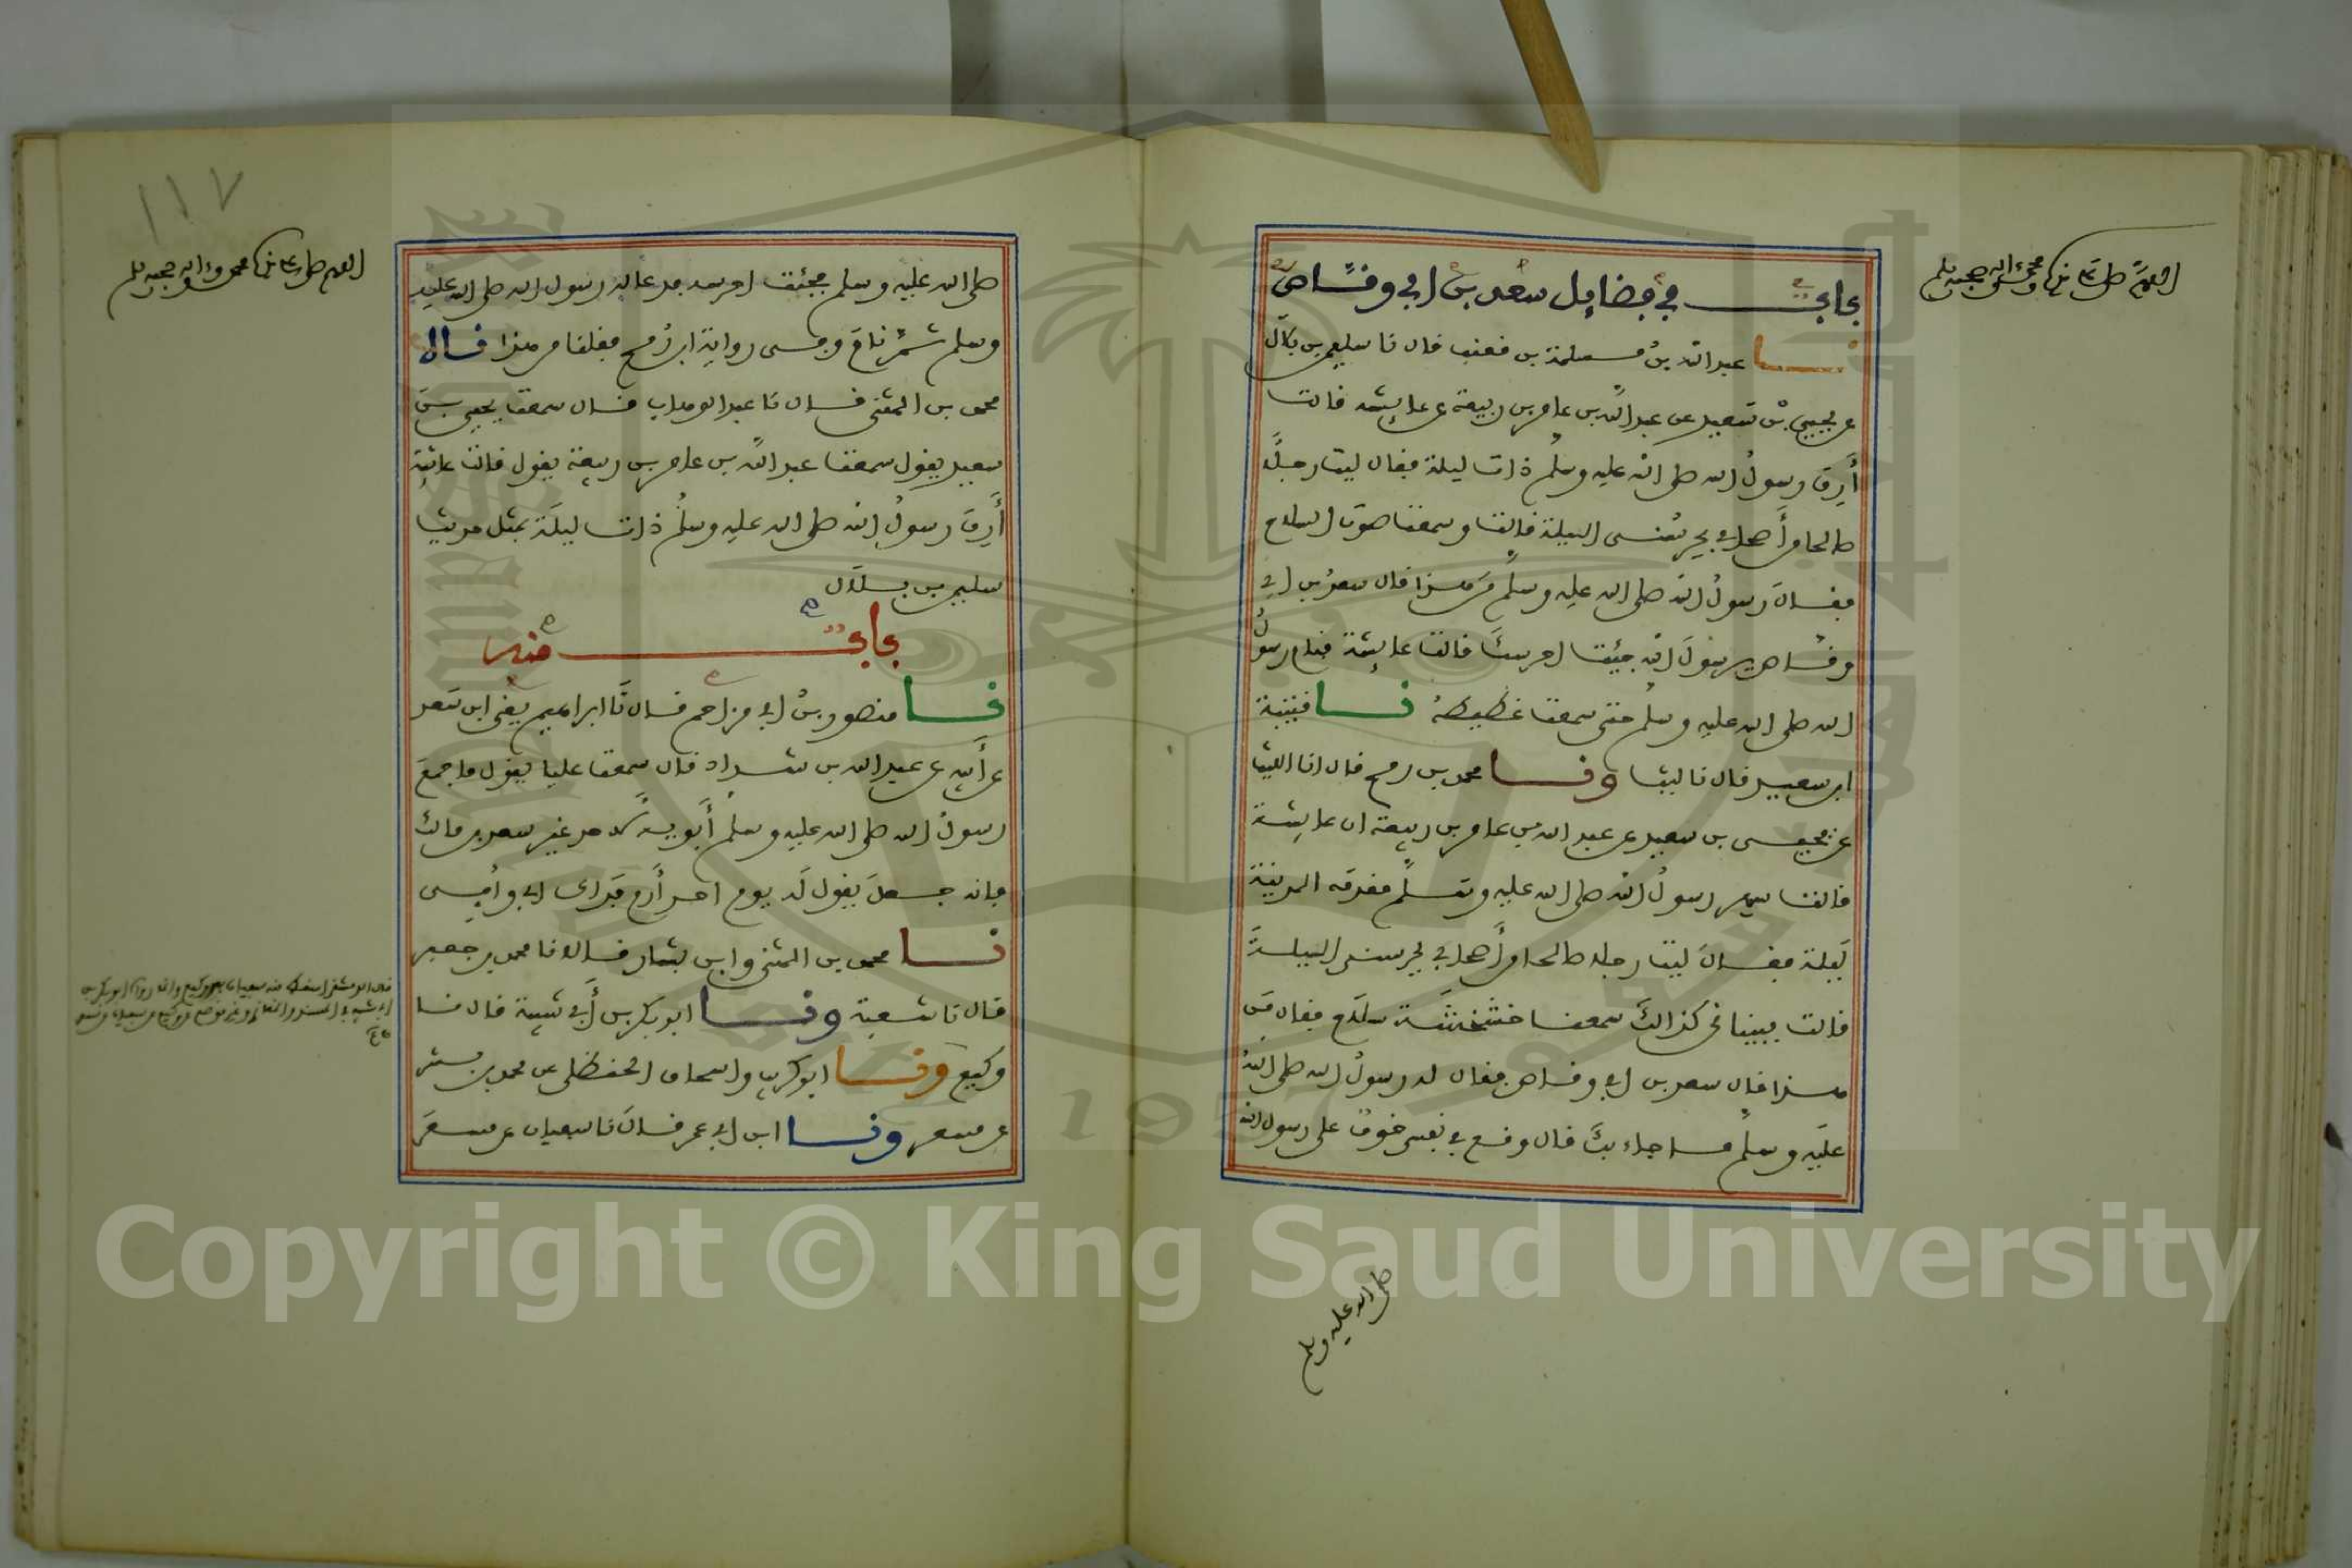 اللهم صل على سيدنا محمد وعلى اله وصحبه وسلم
باب في فضايل سعد بن ابي وقاص
نا عبد الله بن مسلمة بن قعنب قال نا سليمن بن بلال
عن يحيى بن سعيد عن عبد الله بن عامر بن ربيعة عن عايشة قالت
أرق رسول الله صلى الله عليه وسلم ذات ليلة فقال ليت رجلا
صالحا من أصحابي يحرسني الليلة قالت وسمعنا صوت السلاح
فقال رسول الله صلى الله عليه وسلم من هذا قال سعد بن ابي
وقاص يرسول الله جيئت احرسك قالت عايشة فنام رسول
الله صلى الله عليه وسلم حتى سمعت غطيطه نا قتيبة
ابن سعيد قال نا ليث ونا محمد بن رمح قال انا الليث
عن يحيى بن سعيد عن عبد الله بن عامر بن ربيعة ان عايشة
قالت سهر رسول الله صلى الله عليه وسلم مقدمه المدينة
ليلة فقال ليت رجلا صالحا من أصحابي يحرسني الليلة
قالت فبينا نحن كذالك سمعنا خشخشة سلاح فقال من
هذا قال سعد بن ابي وقاص فقال له رسول الله صلى الله
عليه وسلم ما جاء بك قال وقع في نفسي خوف على رسول الله
صلى الله عليه وسلم
١١٧
اللهم صل على سيدنا محمد وعلى اله وصحبه وسلم
صلى الله عليه وسلم فجئت احرسه فدعا له رسول الله صلى الله عليه
وسلم ثم نام وفي رواية ابن رمح فقلنا من هذا قال
محمد بن المثنى قال نا عبد الوهاب قال سمعت يحيى بن
سعيد يقول سمعت عبد الله بن عامر بن ربيعة يقول قالت عائشة
أرق رسول الله صلى الله عليه وسلم ذات ليلة بمثل حديث
سليمن بن بلال
باب منه
نا منصور بن ابي مزاحم قال نا ابراهيم يعني ابن سعد
عن أبيه عن عبد الله بن شداد قال سمعت عليا يقول ما جمع
رسول الله صلى الله عليه وسلم أبويه لأحد غير سعد بن مالك
فانه جعل يقول له يوم احد أرم فداك ابي وأمي
نا محمد بن المثنى وابن بشار قالا نا محمد بن جعفر
قال نا شعبة ونا ابو بكر بن أبي شيبة قال نا
وكيع ونا ابو كريب واسحاق الحنظلي عن محمد بن بشر
عن مسعر ونا ابن ابي عمر قال نا سفيان عن مسعر